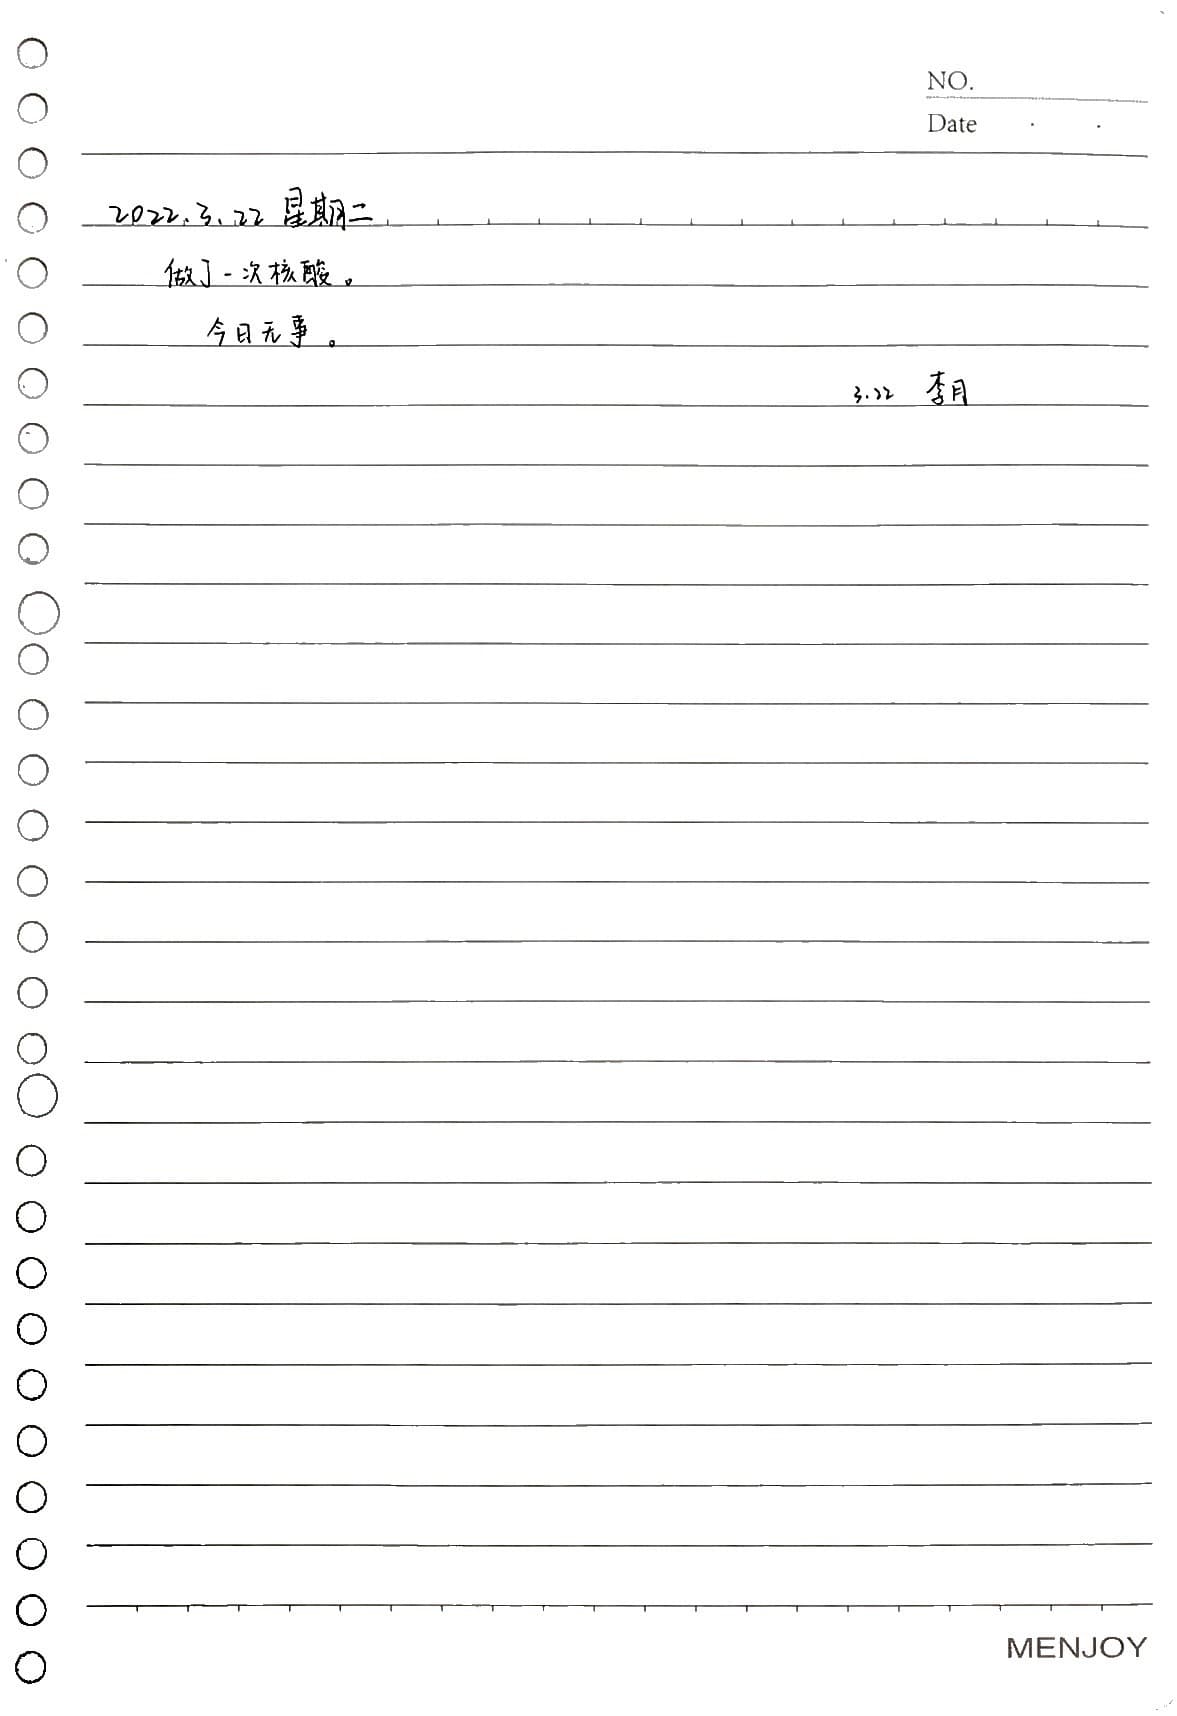 NO.
Date
2022.3.22 星期二
做了一次核酸。
今日无事。
3.22 李月
MENJOY